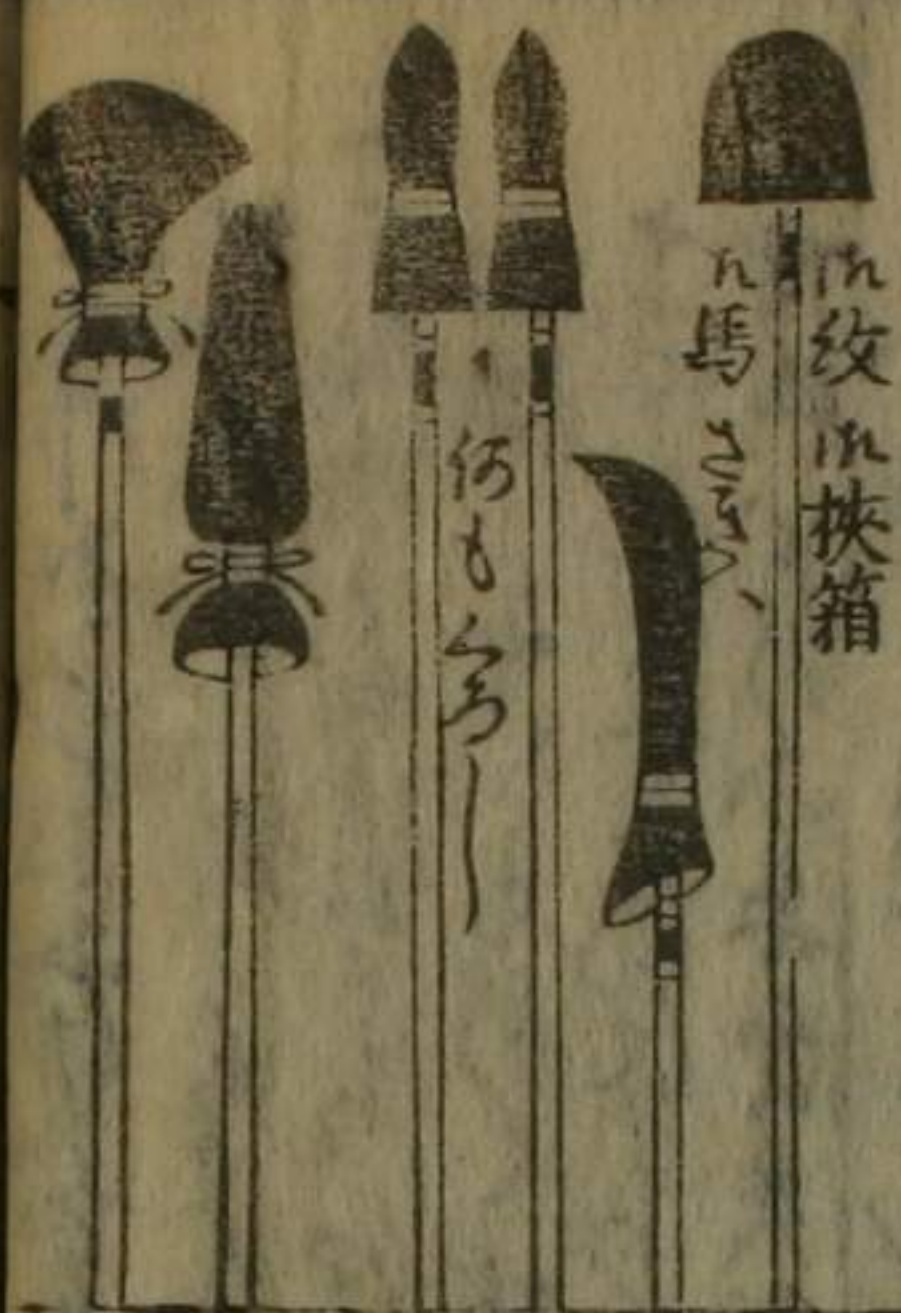 御紋 御挟箱
御馬さき
何もくろし